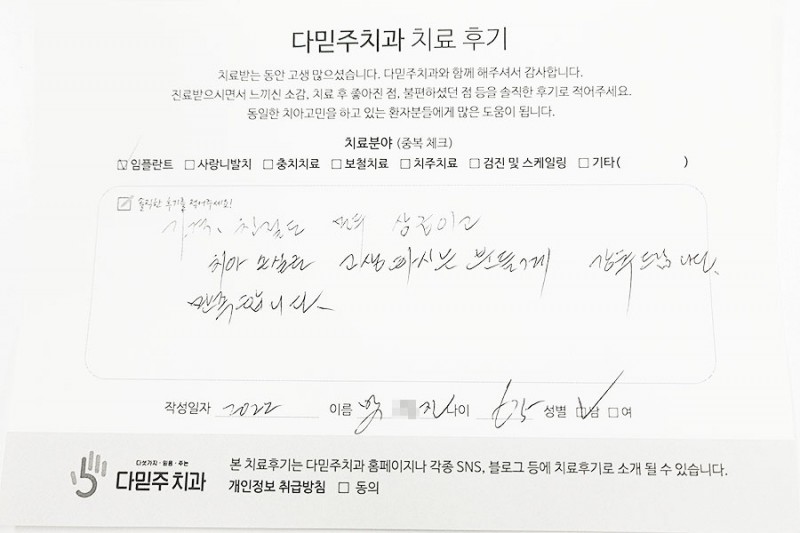 다믿주치과 치료 후기
치료받는 동안 고생 많으셨습니다. 다믿주치과와 함께 해주셔서 감사합니다.
진료받으시면서 느끼신 소감, 치료 후 좋아진 점, 불편하셨던 점 등을 솔직한 후기로 적어주세요.
동일한 치아고민을 하고 있는 환자분들에게 많은 도움이 됩니다.
치료분야 (중복 체크)
☑임플란트 □사랑니발치 □충치치료 □보철치료 □치주치료 □검진 및 스케일링 □기타( )
솔직한 후기를 적어주세요!
친절도
치아 고생하시는 분들께
만족합니다
작성일자 2022 이름 나이 성별 ☑남 □여
다섯가지·믿음·주는
다믿주치과
본 치료후기는 다믿주치과 홈페이지나 각종 SNS, 블로그 등에 치료후기로 소개 될 수 있습니다.
개인정보 취급방침 □ 동의